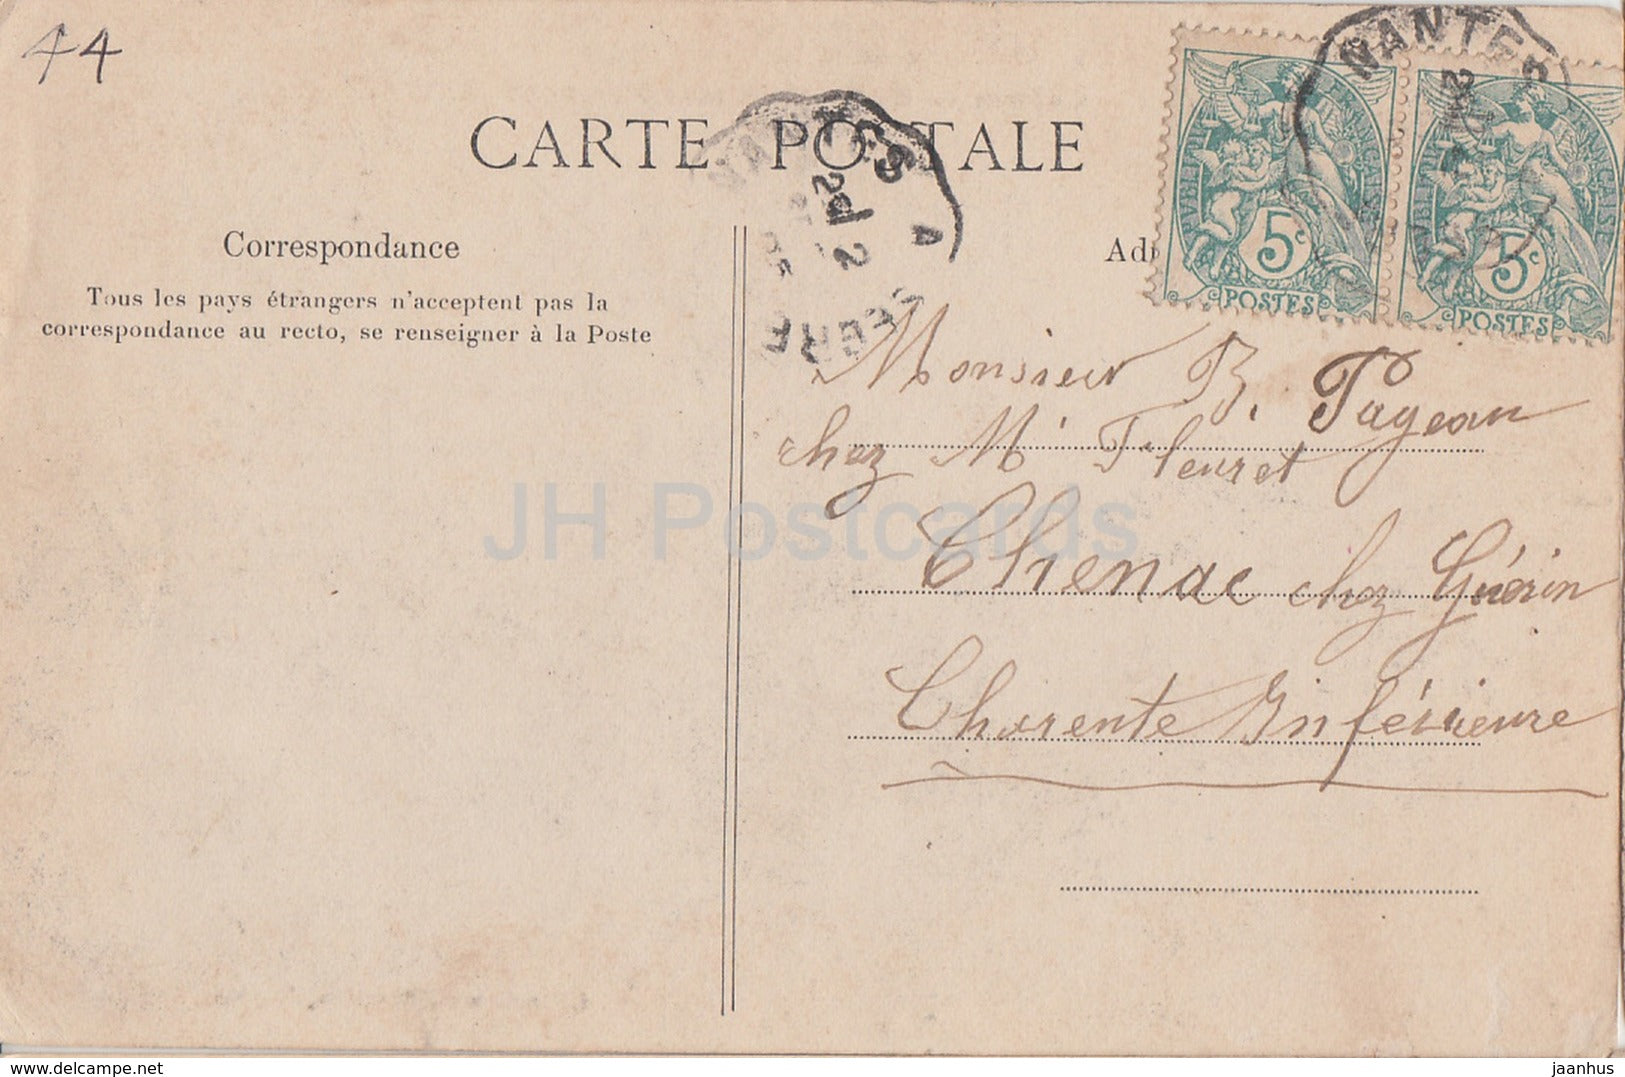 44
CARTE POSTALE
NANTES
NANTES A
2d 2
EURE
Correspondance
Tous les pays étrangers n'acceptent pas la
correspondance au recto, se renseigner à la Poste
Ad
FRANÇAISE
5c
POSTES
FRANÇAISE
5c
POSTES
Monsieur B. Pageau
chez Mr Fleuret
Chenac chez Guérin
Charente Inférieure
JH Postcards
www.delcampe.net
jaanhus